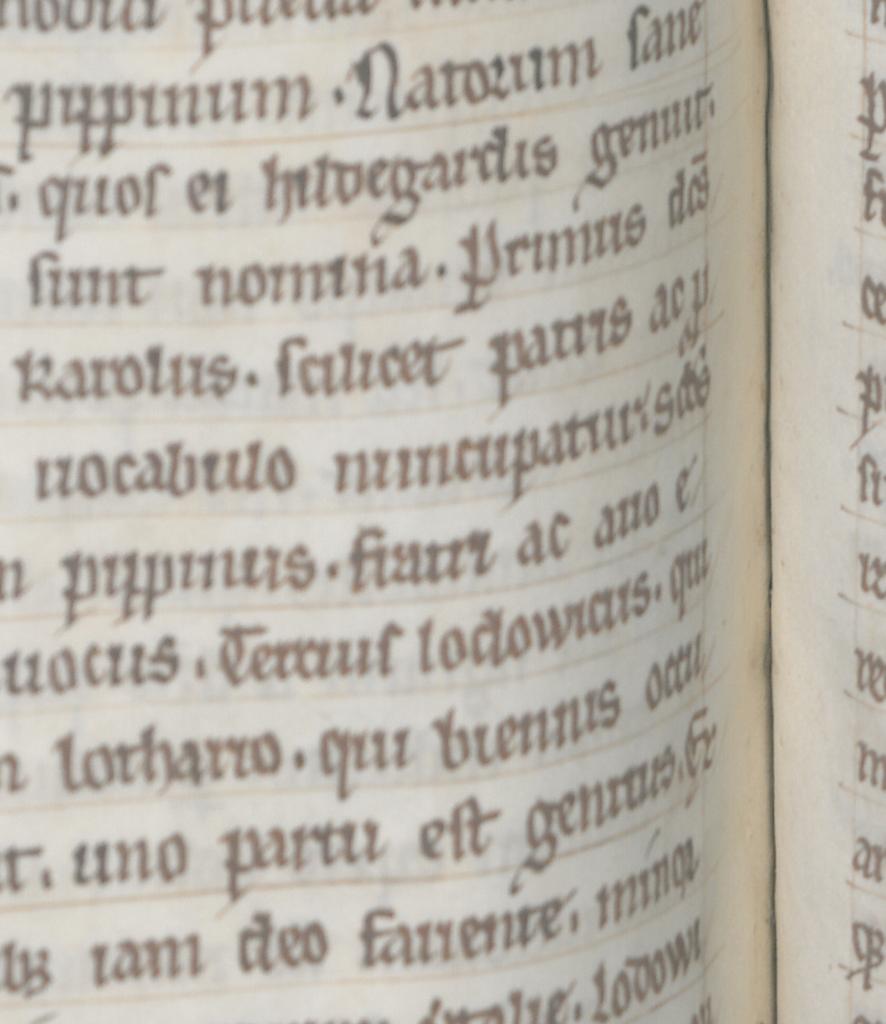 pippinum . Natorum sane
. quos ei hildegardis genuit.
sunt nomina . Primus dc̄s
karolus . scilicet patris ac p
uocabulo nuncupatur scd̄s
pippinus . fratri ac auo e
uocus . Tercius lodowicus . qui
lothario . qui biennis occu
t . uno partu est genitus. Ex
iam deo fauente . minoꝝ
italie . lodowi